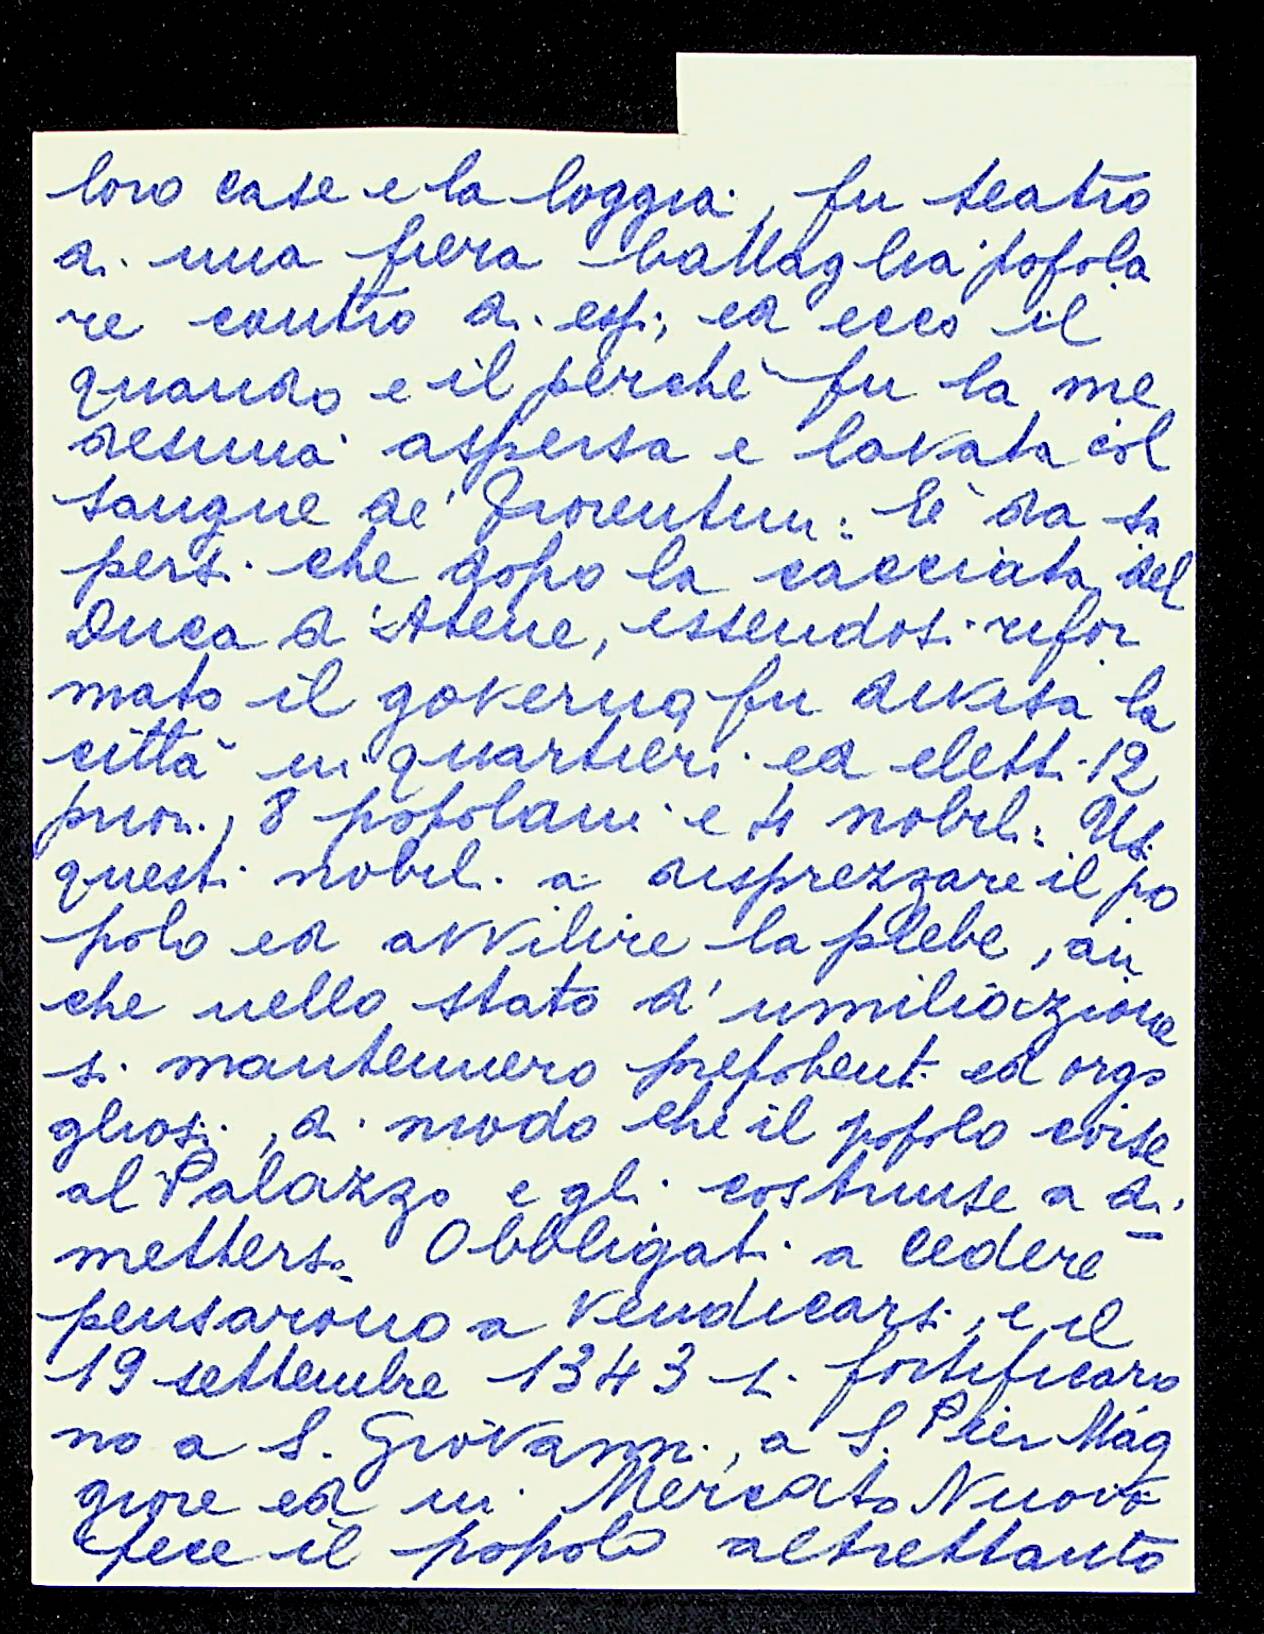 loro case e la loggia, fu teatro
di una fiera battaglia popola
re contro di essi; ed ecco il
quando e il perché fu la me
desima aspersa e lavata col
sangue de' Fiorentini. È da sa
persi che dopo la cacciata del
Duca d'Atene, essendosi rifor
mato il governo fu divisa la
città in quartieri ed eletti 12
priori, 8 popolani e 4 nobili. Usi
questi nobili a disprezzare il po
polo ed avvilire la plebe, an
che nello stato d'umiliazione
si mantennero prepotenti ed orgo
gliosi, di modo che il popolo corse
al Palazzo e gli costrinse a di
mettersi. Obbligati a cedere
pensarono a vendicarsi, e il
19 settembre 1343 si fortificaro
no a S. Giovanni, a S. Pier Mag
giore ed in Mercato Nuovo
fece il popolo altrettanto